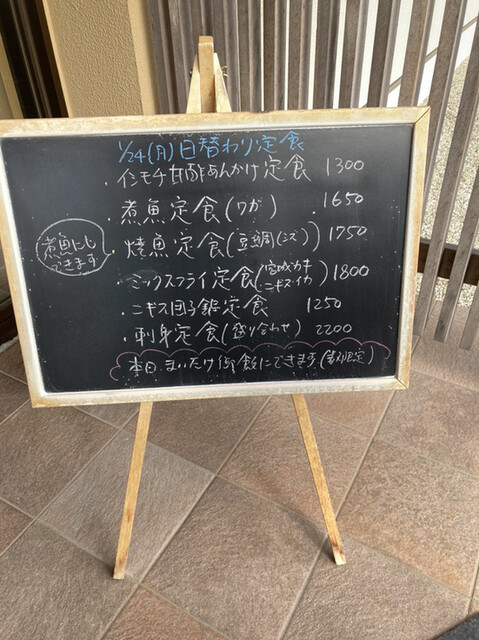 1/24(月)日替わり定食
・イシモチ甘酢あんかけ定食 1300
・煮魚定食(ワガ) 1650
煮魚にも
できます
・焼魚定食(豆鯛(シズ)) 1750
・ミックスフライ定食(宮城カキ
ニギス・イカ) 1800
・ニギス団子鍋定食 1250
・刺身定食(盛り合わせ) 2200
本日、まいたけ御飯にできます。